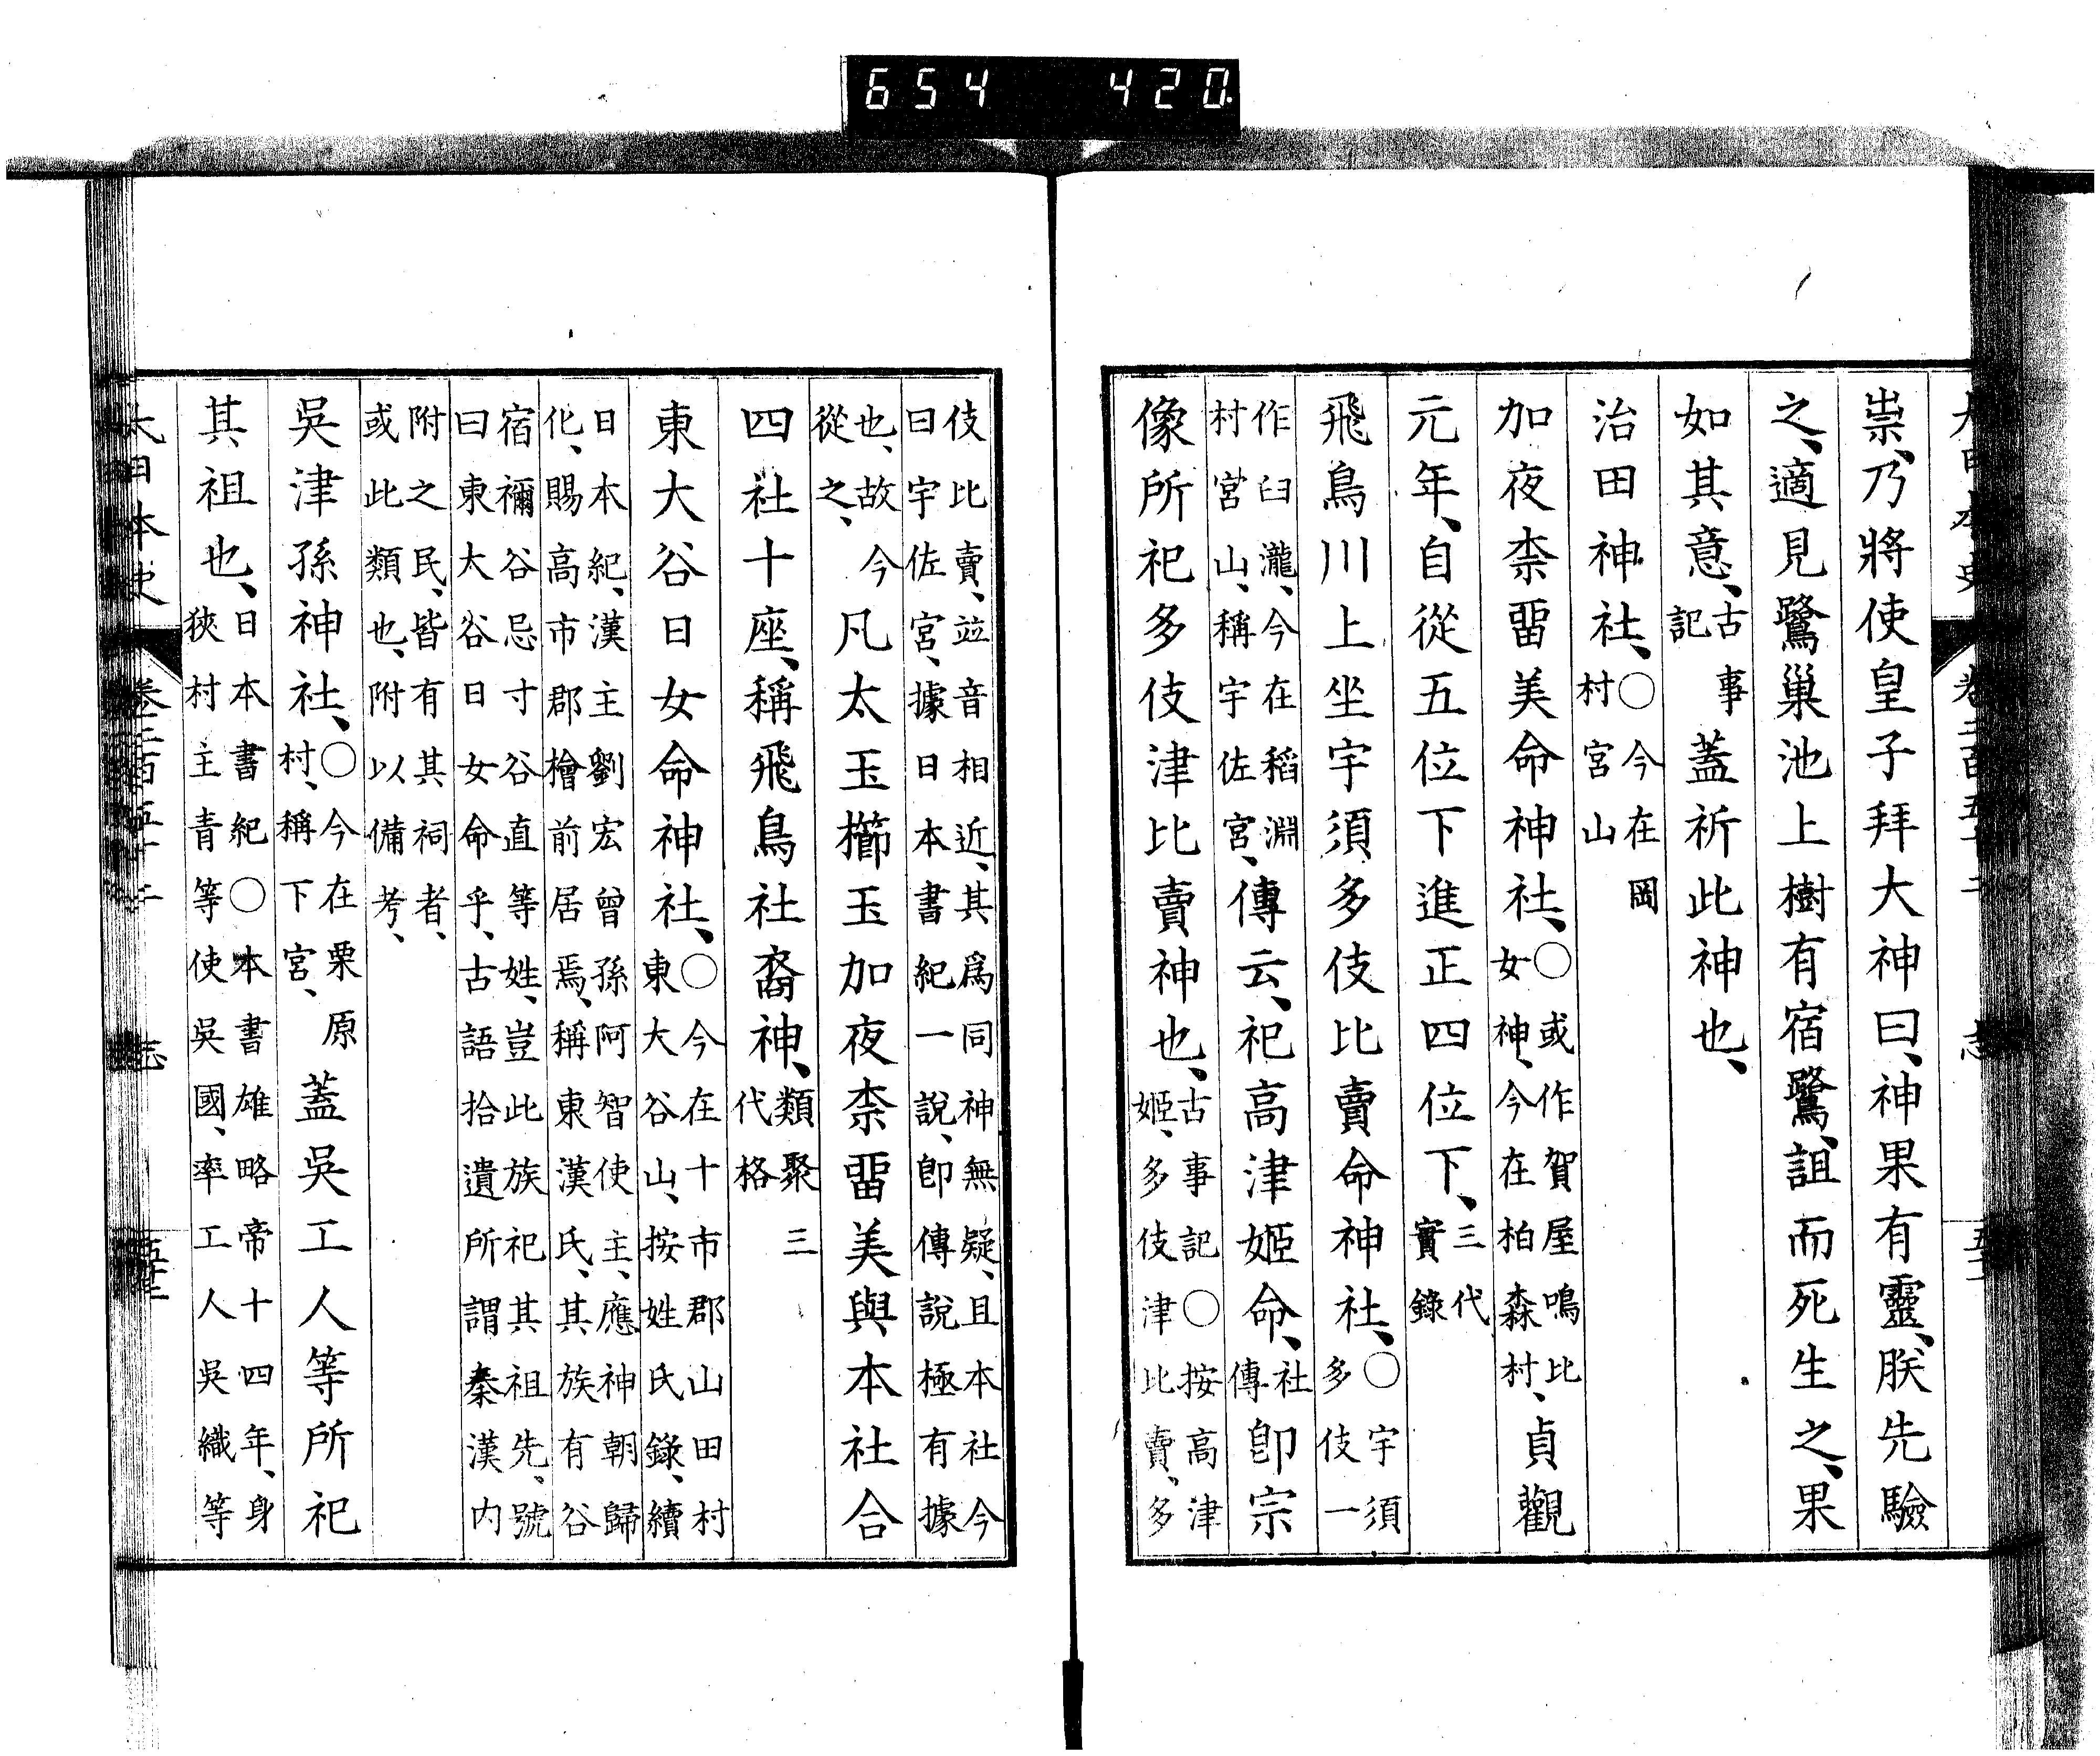 祟、乃將使皇子拜大神曰、神果有靈、朕先驗
之、適見鷺巢池上樹有宿鷺、詛而死生之、果
如其意、古事記蓋祈此神也、
治田神社、○今在岡村宮山
加夜柰畱美命神社、○或作賀屋鳴比女神、今在柏森村、貞觀
元年、自從五位下進正四位下、三代實錄
飛鳥川上坐宇須多伎比賣命神社、○宇須多伎一
作臼瀧、今在稻淵村宮山、稱宇佐宮、傳云、祀高津姬命、社傳卽宗
像所祀多伎津比賣神也、古事記○按高津姬、多伎津比賣、多
伎比賣、竝音相近、其爲同神無疑、且本社今
曰宇佐宮、據日本書紀一說、卽傳說極有據
也、故今從之、凡太玉櫛玉加夜柰畱美與本社合
四社十座、稱飛鳥社裔神、類聚三代格
東大谷日女命神社、○今在十市郡山田村東大谷山、按姓氏錄、續
日本紀、漢主劉宏曾孫阿智使主、應神朝歸
化、賜高市郡檜前居焉、稱東漢氏、其族有谷
宿禰谷忌寸谷直等姓、豈此族祀其祖先、號
曰東大谷日女命乎、古語拾遺所謂秦漢内
附之民、皆有其祠者、
或此類也、附以備考、
吳津孫神社、○今在栗原村、稱下宮、蓋吳工人等所祀
其祖也、日本書紀○本書雄略帝十四年、身狹村主青等使吳國、率工人吳織等
大日本史 卷二百五十二 志
654 420